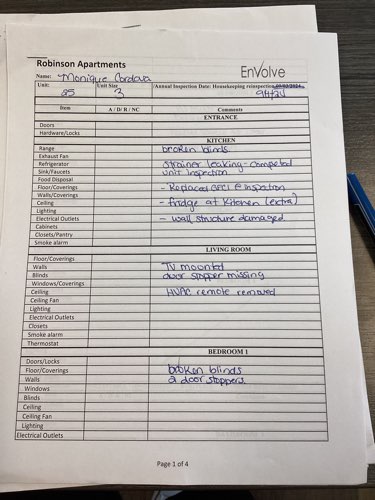 Robinson Apartments
EnVolve
Name: Monique Cordova
Unit: Unit Size /Annual Inspection Date: Housekeeping reinspection
85 3 9/4/24
Item A / D/ R / NC Comments
ENTRANCE
Doors
Hardware/Locks
KITCHEN
Range broken blinds.
Exhaust Fan
Refrigerator strainer leaking - competed
Sink/Faucets unit inspection.
Food Disposal
Floor/Coverings - Replaced GFCI @ inspection
Walls/Coverings
Ceiling - fridge at Kitchen (extra)
Lighting
Electrical Outlets - wall structure damaged
Cabinets
Closets/Pantry
Smoke alarm
LIVING ROOM
Floor/Coverings
Walls TV mounted
Blinds door stopper missing
Windows/Coverings
Ceiling HVAC remote removed
Ceiling Fan
Lighting
Electrical Outlets
Closets
Smoke alarm
Thermostat
BEDROOM 1
Doors/Locks
Floor/Coverings broken blinds
Walls 2 door stoppers.
Windows
Blinds
Ceiling
Ceiling Fan
Lighting
Electrical Outlets
Page 1 of 4